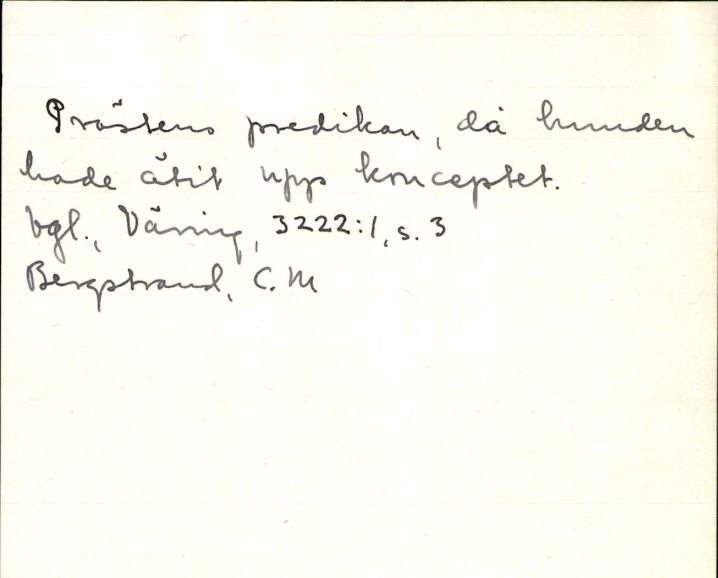 Prästens predikan, då hunden
hade ätit upp konceptet.
Vgl., Väring, 3222:1, s. 3
Bergstrand, C. M